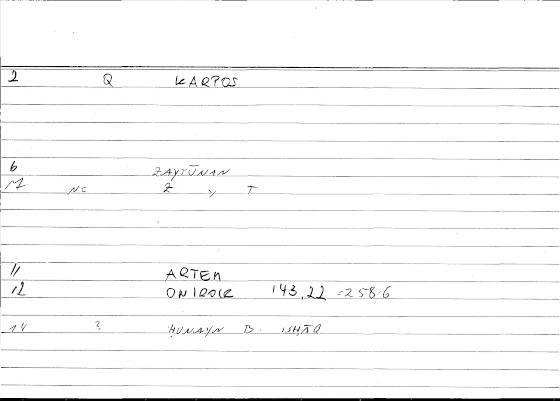 2 Q KARPOS
6 ZAYTŪNAN
NC Z Y T
11 ARTEM
12 ONIROCR 143,22 = 258.6
14 ? ḤUNAYN B. ISḤĀQ